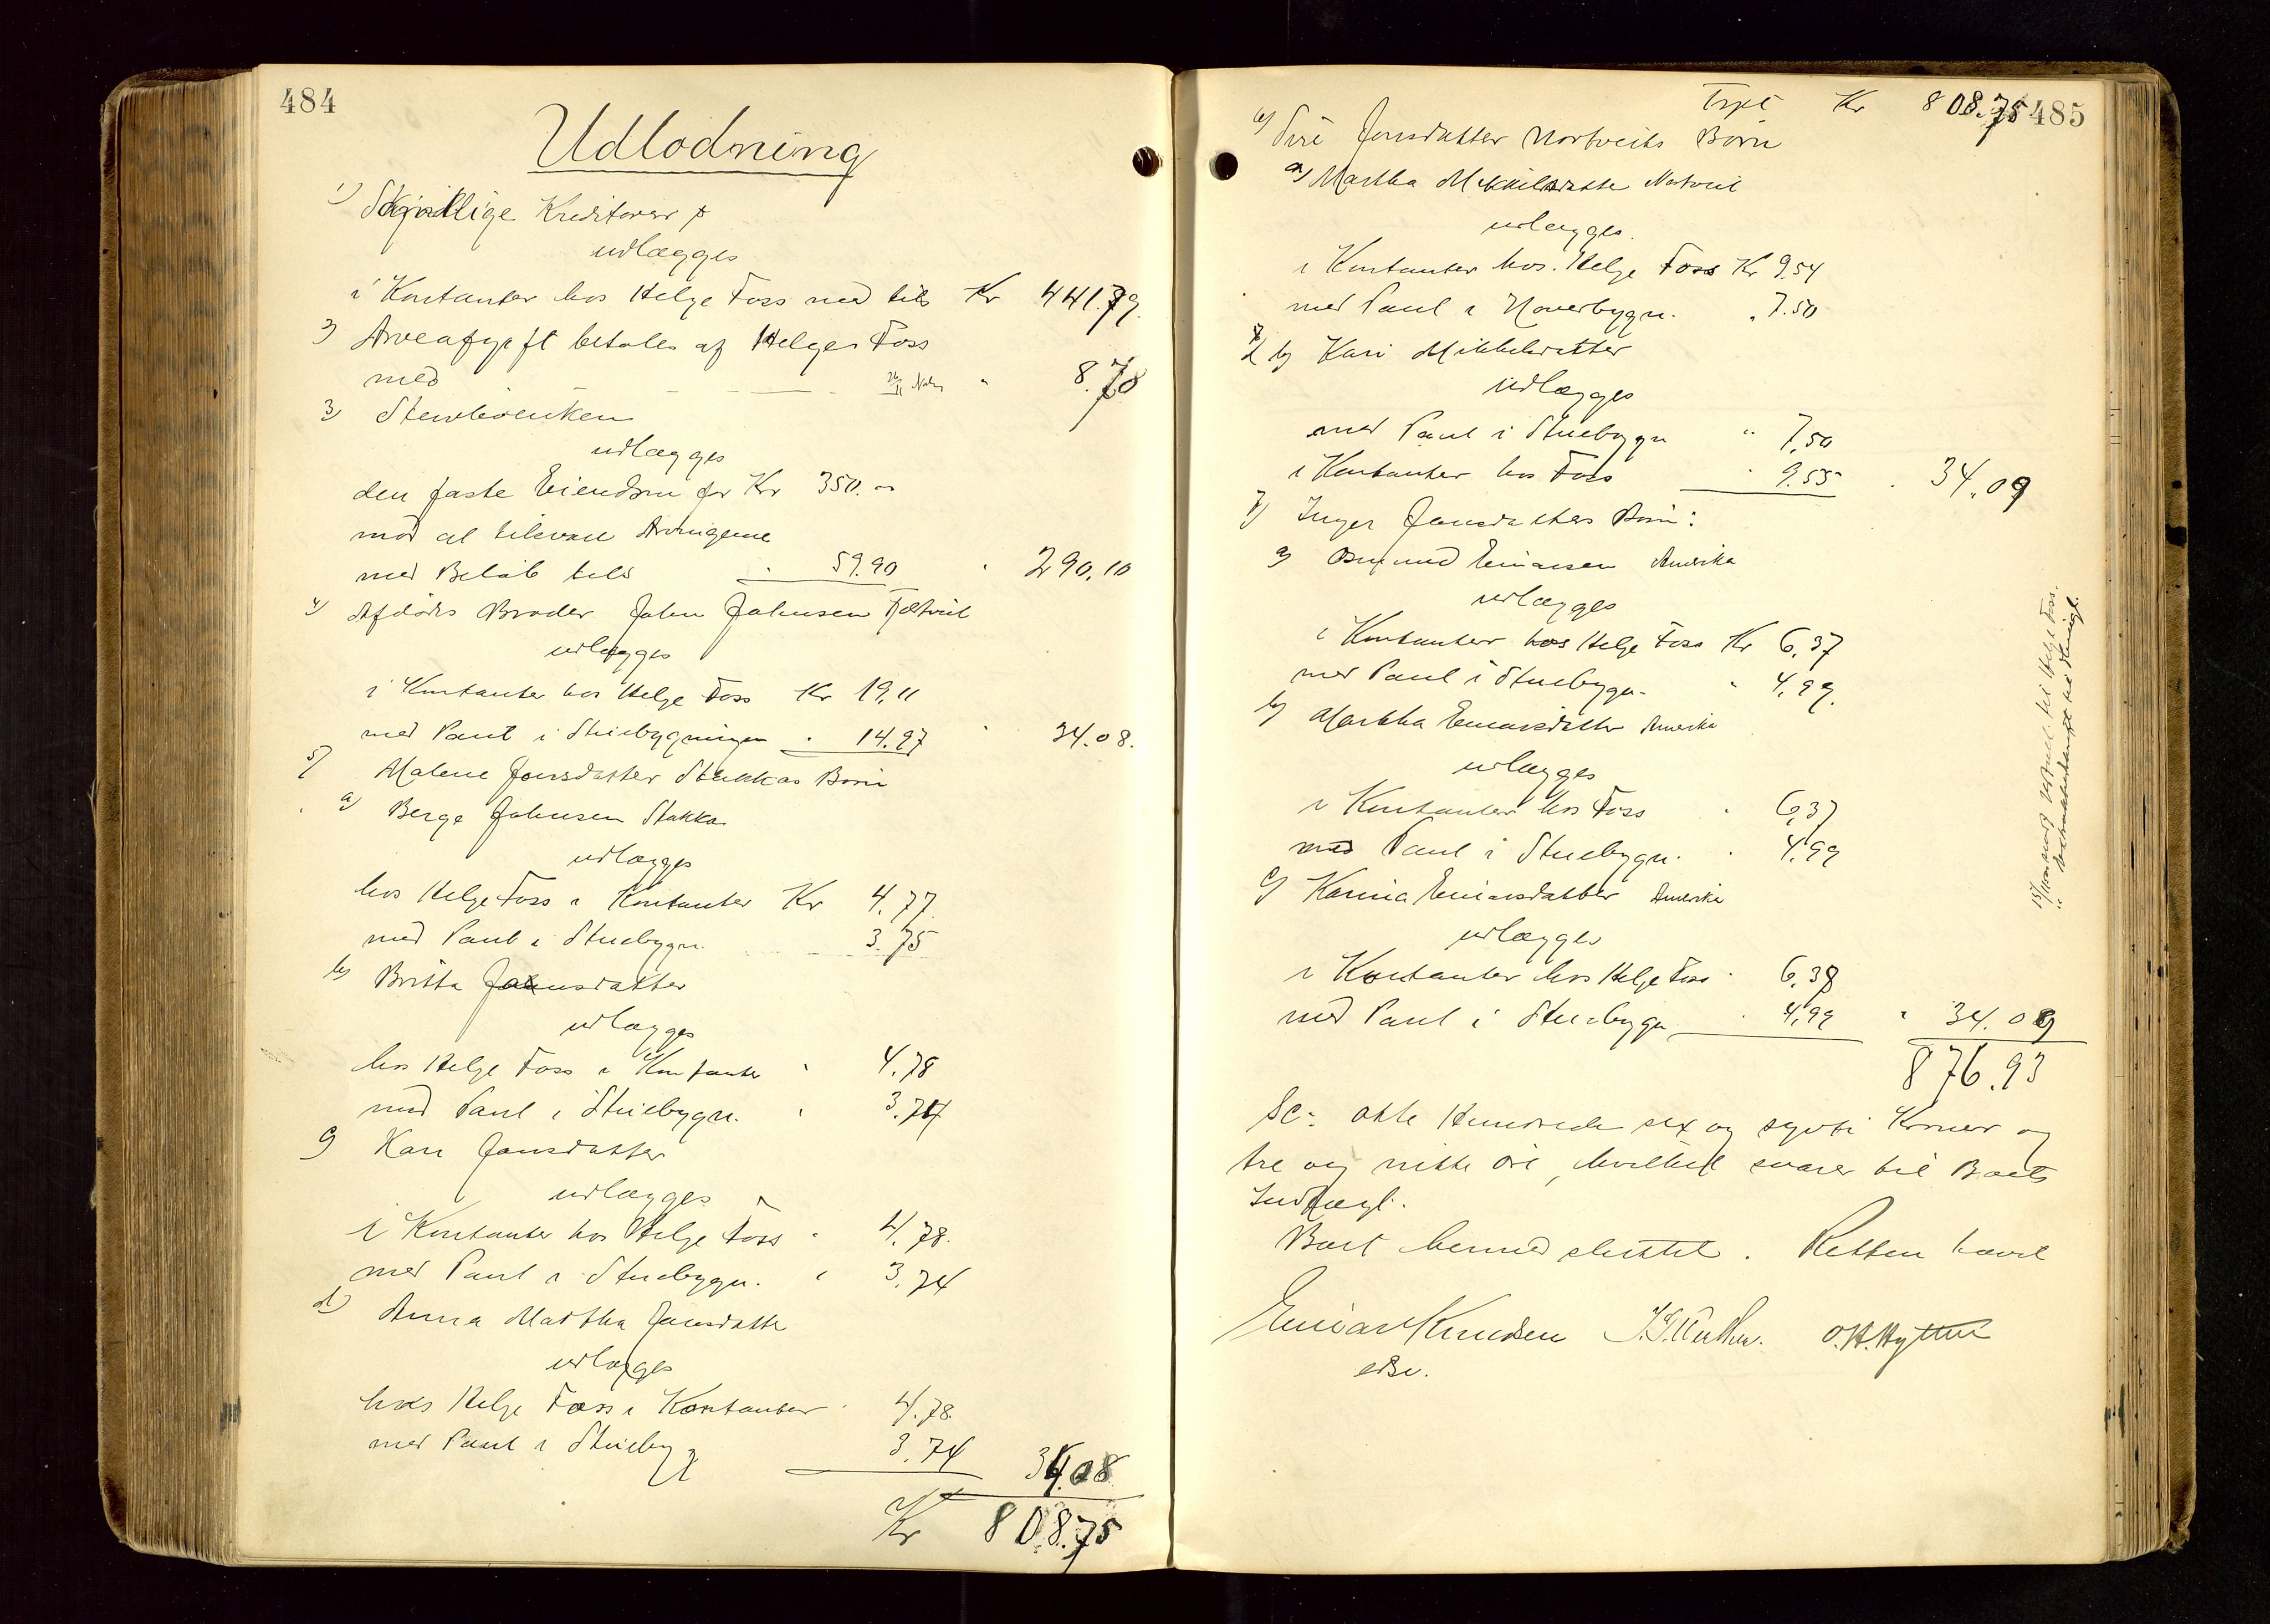 484
Udlodning
1) Skjællige Kreditorer
udlægges
i Kontanter hos Helge Foss med tils Kr 441.79.
2) Arveafgift betales af Helge Foss
med " 8.78
3) Stervboenken
udlægges
den faste Eiendom for Kr 350.-
mod at tilsvare Arvingerne
med Beløb tils " 59.90 " 290.10
4) Afdødes Broder John Johnsen
udlægges
i Kontanter hos Helge Foss Kr 19.11
med Pant i Stuebygningen " 14.97 " 34.08.
5) Malene Jonsdatter Stakkas Børn
a) Berge Johnsen Stakka
udlægges
hos Helge Foss i Kontanter Kr 4.77
med Pant i Stuebygn. 3.75
b) Britta Jonsdatter
udlægges
hos Helge Foss i Kontanter " 4.78
med Pant i Stuebygn. " 3.74
c) Kari Jonsdatter
udlægges
i Kontanter hos Helge Foss " 4.78.
med Pant i Stuebygn. " 3.74
d) Anna Martha Jonsdatter
udlægges
hos Helge Foss i Kontanter " 4.78.
med Pant i Stuebyg 3.74 34.08
Kr 808.75
485
Trpt Kr 808.75
6) Siri Jonsdatter Nortveits Børn
a) Martha Mikkelsdatter Nortveit
udlægges.
i Kontanter hos. Helge Foss Kr 9.54
med Pant i Hoverbygn. " 7.50
b) Kari Mikkelsdatter
udlægges
med Pant i Stuebygn " 7,50
i Kontanter hos Foss " 9.55 " 34.09
7) Inger Jonsdatters Børn:
a) Osmund Einarsen Amerika
udlægges
i Kontanter hos Helge Foss Kr 6,37
med Pant i Stuebygn. " 4,99.
b) Martha Einarsdatter Amerika
udlægges
i Kontanter hos Foss " 6,37
med Pant i Stuebygn. " 4,99
c) Karina Einarsdatter Amerika
udlægges
i Kontanter hos Helge Foss " 6,38
med Pant i Stuebygn " 4,99 " 34.09
876.93
Sc: otte Hundrede sex og sytti Kroner og
tre og nitti øre, hvilket svarer til Boets
Indtægt.
Boet hermed sluttet. Retten hævet
Einar Knudsen O.H.Hytten
edsv.